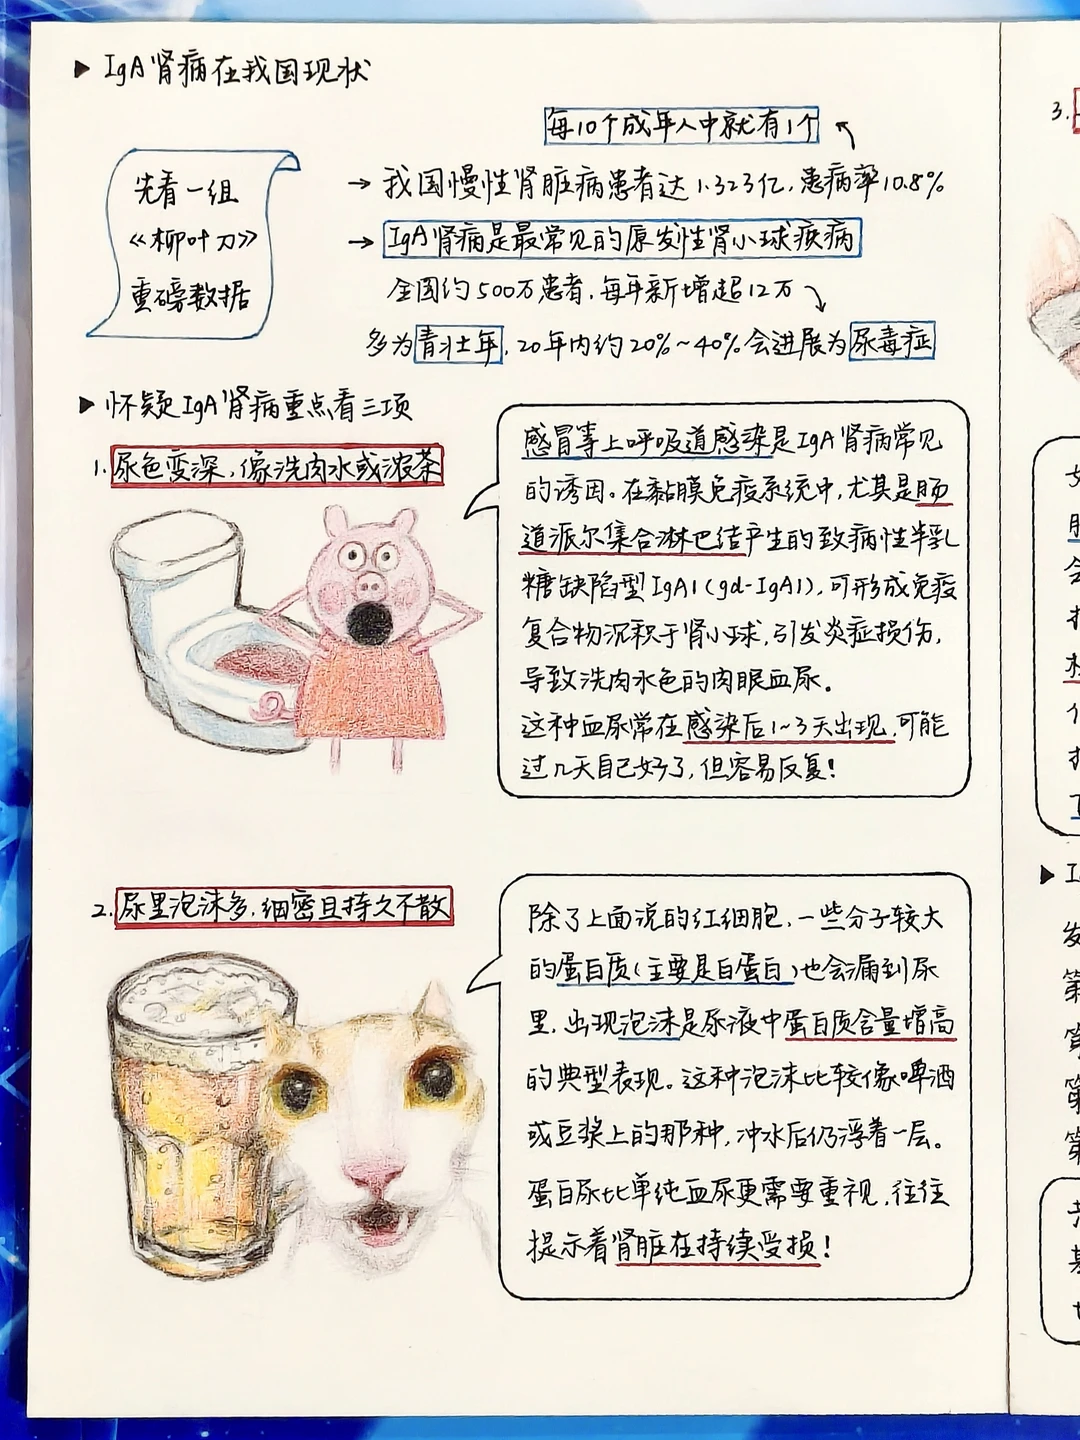 ▶ IgA肾病在我国现状
先看一组
《柳叶刀》
重磅数据
每10个成年人中就有1个
→ 我国慢性肾脏病患者达1.323亿,患病率10.8%
→ IgA肾病是最常见的原发性肾小球疾病
全国约500万患者,每年新增超12万
多为青壮年,20年内约20%~40%会进展为尿毒症
▶ 怀疑IgA肾病重点看三项
1. 尿色变深,像洗肉水或浓茶
感冒等上呼吸道感染是IgA肾病常见
的诱因。在黏膜免疫系统中,尤其是肠
道派尔集合淋巴结产生的致病性半乳
糖缺陷型IgA1(gd-IgA1),可形成免疫
复合物沉积于肾小球,引发炎症损伤,
导致洗肉水色的肉眼血尿。
这种血尿常在感染后1~3天出现,可能
过几天自己好了,但容易反复!
2. 尿里泡沫多,细密且持久不散
除了上面说的红细胞,一些分子较大
的蛋白质(主要是白蛋白)也会漏到尿
里,出现泡沫是尿液中蛋白质含量增高
的典型表现。这种泡沫比较像啤酒
或豆浆上的那种,冲水后仍浮着一层。
蛋白尿比单纯血尿更需要重视,往往
提示着肾脏在持续受损!
3.
▶ I
发
第
第
第
第